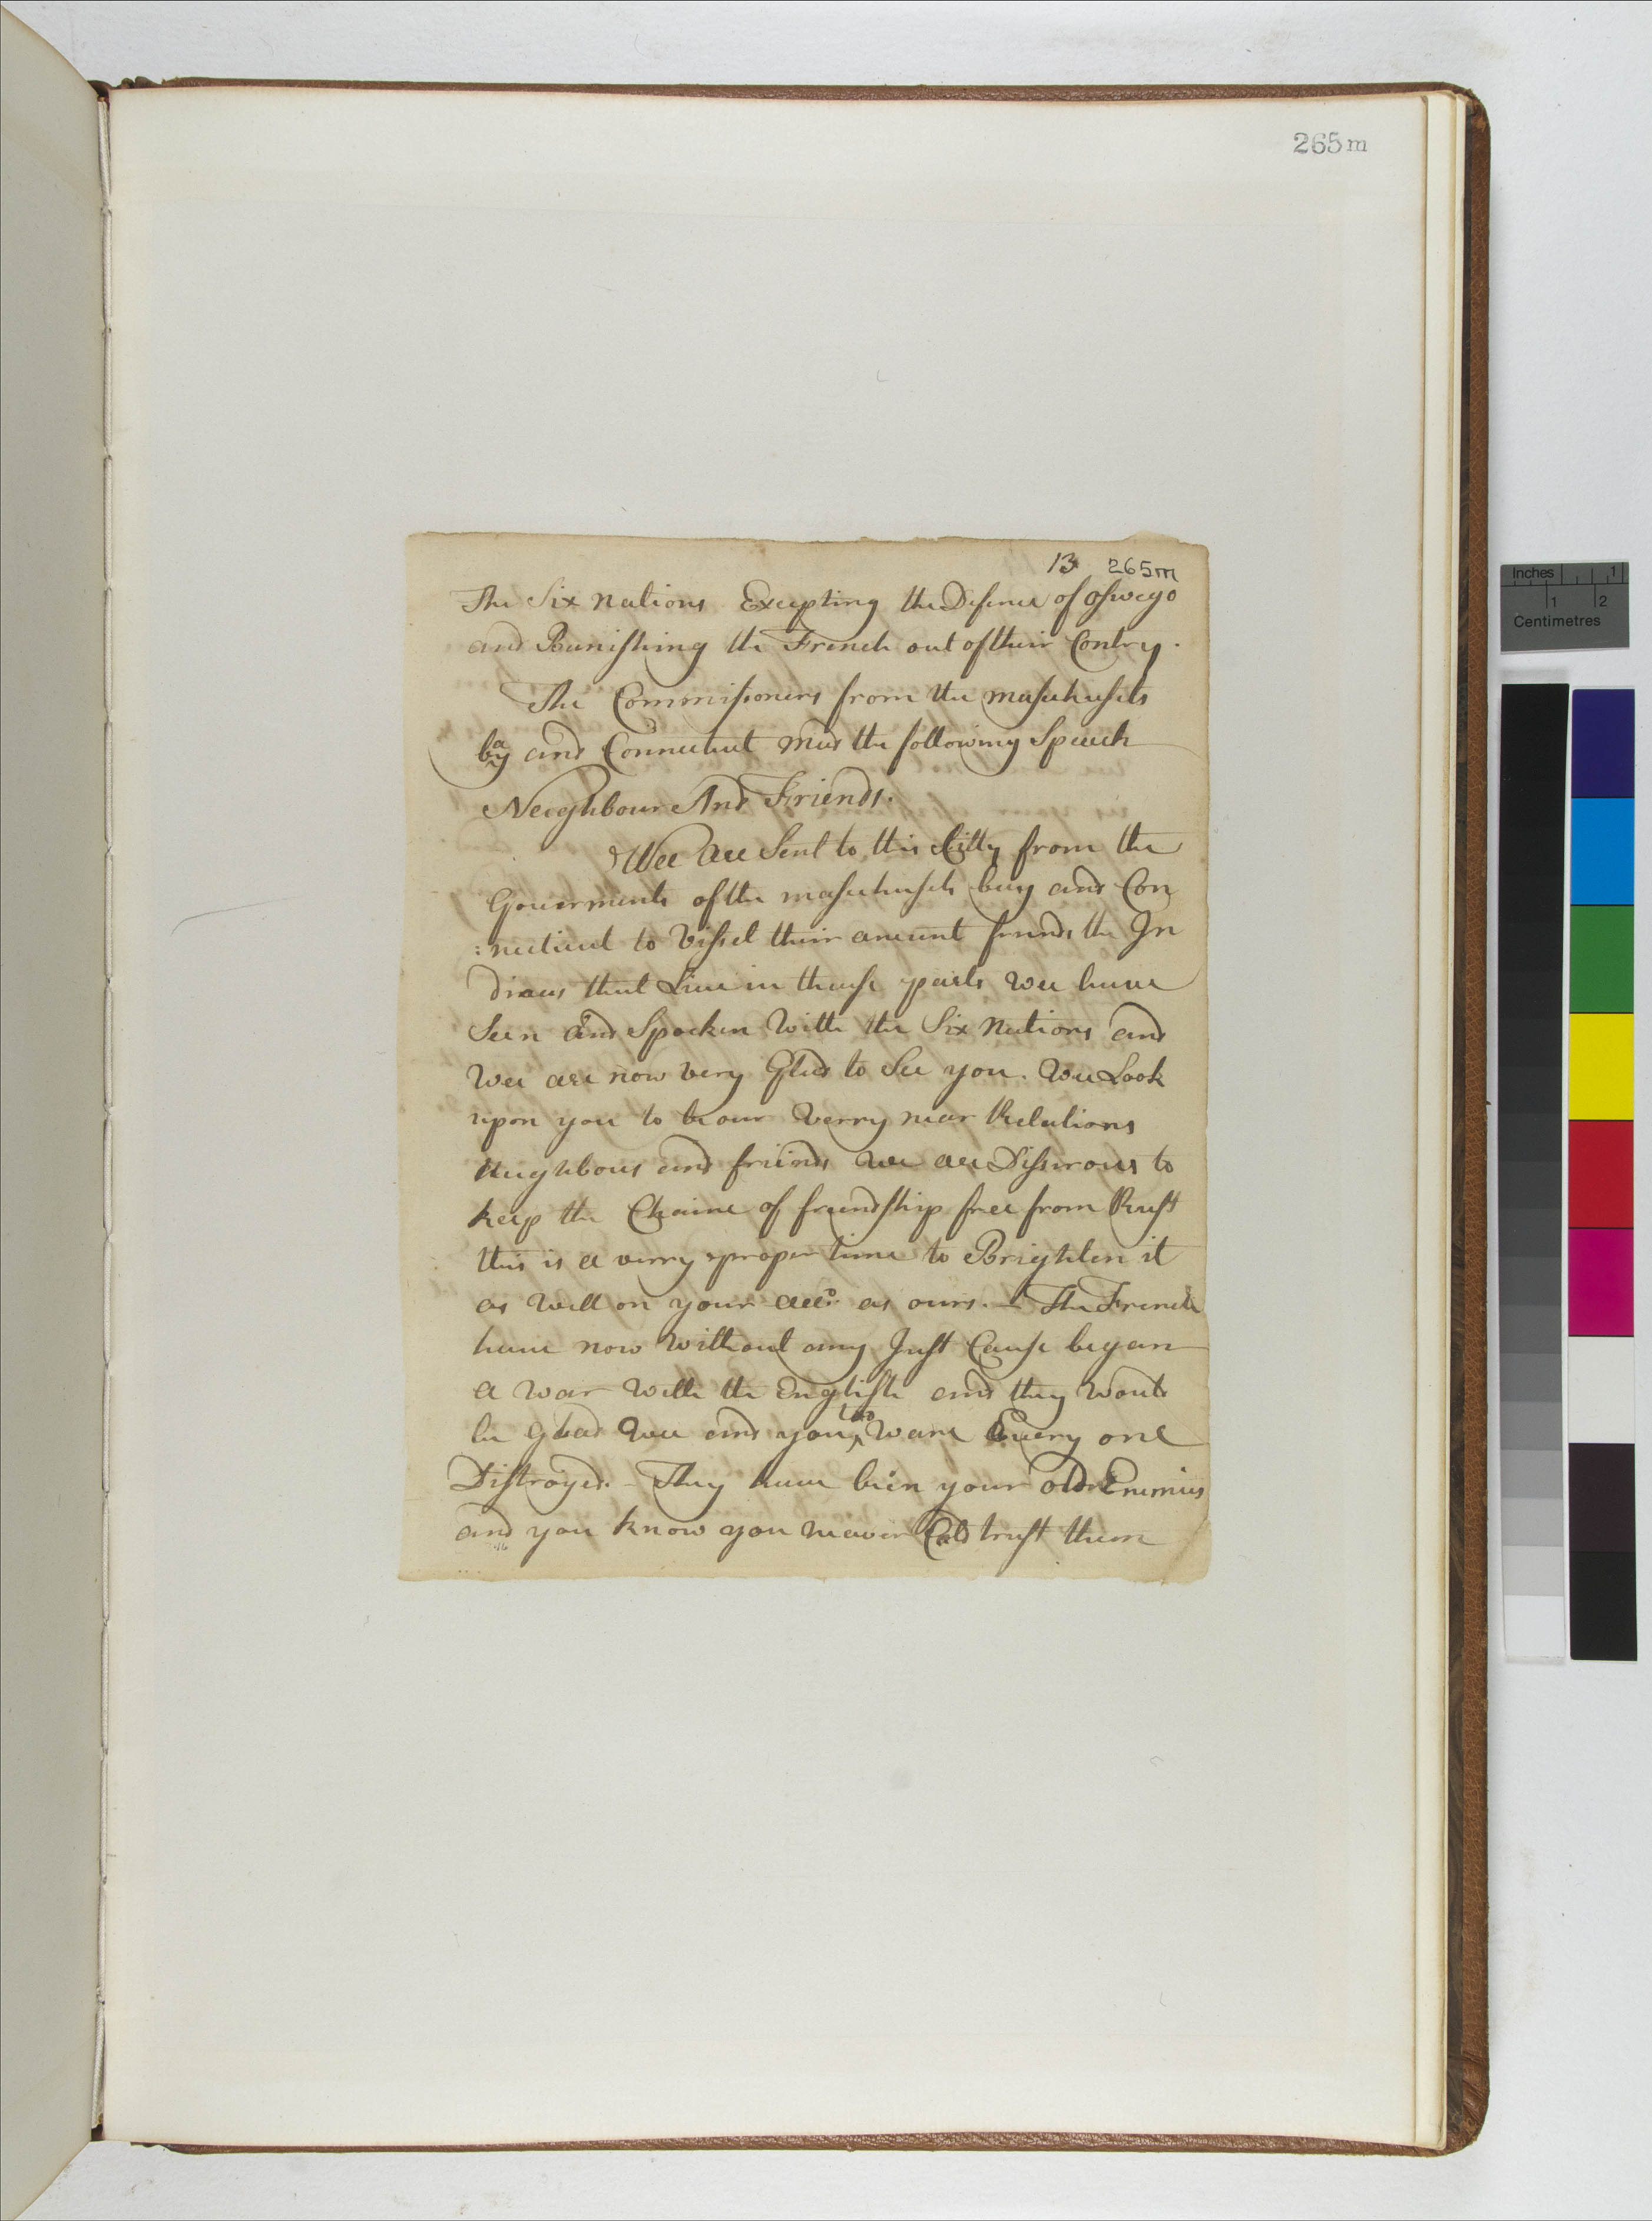 265m
13 265m
The Six Nations Excepting the Defence of Oswego
and Banishing the French out of their Contry.
The Commisioners from the masachusets
bay and Connecticut mad the following Speech
Neighbour And Friends.
Wee Are Sent to this Citty from the
Goverments of the masachusets bay and Con
:necticut to Vissel their ancient frends the In
dians that Live in thease parts wee have
Seen and Spocken With the Six Nations and
Wee are now very Glad to See you. Wee Look
upon you to be our Verry near Relations
Neighbous and friends We are Dissirous to
keep the Chaine of frendship free from Rust
this is a verry proper time to Brighten it
as Well on your acco as ours. - The French
have now Without any Just Cause began
a War With the English and they Would
be glad Wee and you too Ware Every one
Distroyed. - They have bien your old Enemies
and you know you neaver Cold trust them
Inches 1
1 2
Centimetres